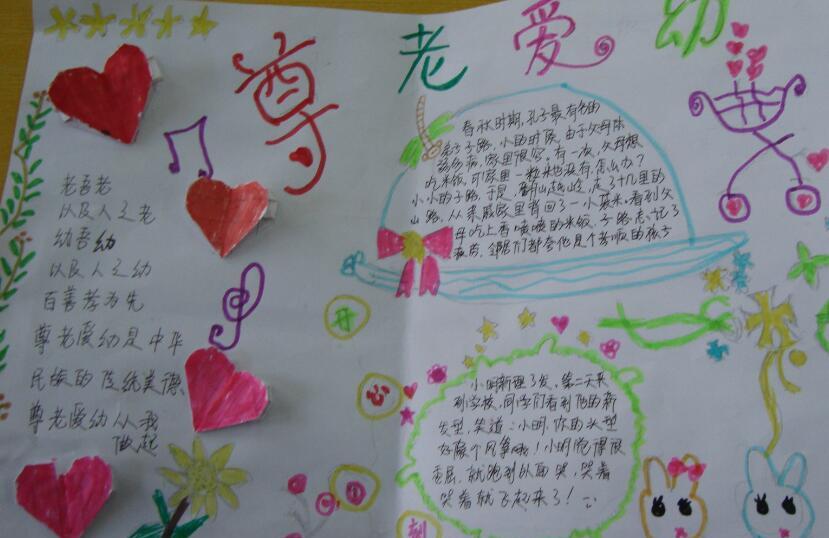 尊老爱幼
老吾老
以及人之老
幼吾幼
以及人之幼
百善孝为先
尊老爱幼是中华
民族的传统美德
尊老爱幼从我
做起
春秋时期,孔子最有名的
弟子子路,小的时候,由于父母体
弱多病,家里很穷,有一次,父母想
吃米饭,可家里一粒米也没有,怎么办?
小小的子路,于是,翻山越岭,走了十几里的
山路,从亲戚家里背回了一小袋米,看到父
母吃上香喷喷的米饭,子路忘记了
疲劳,邻居们都夸他是个孝顺的孩子
开
心
刻
小明新理了发,第二天来
到学校,同学们看到他的新
发型,笑道:小明,你的头型
好像个风筝哦!小明觉得很
委屈,就跑到外面哭,哭着
哭着就飞起来了!